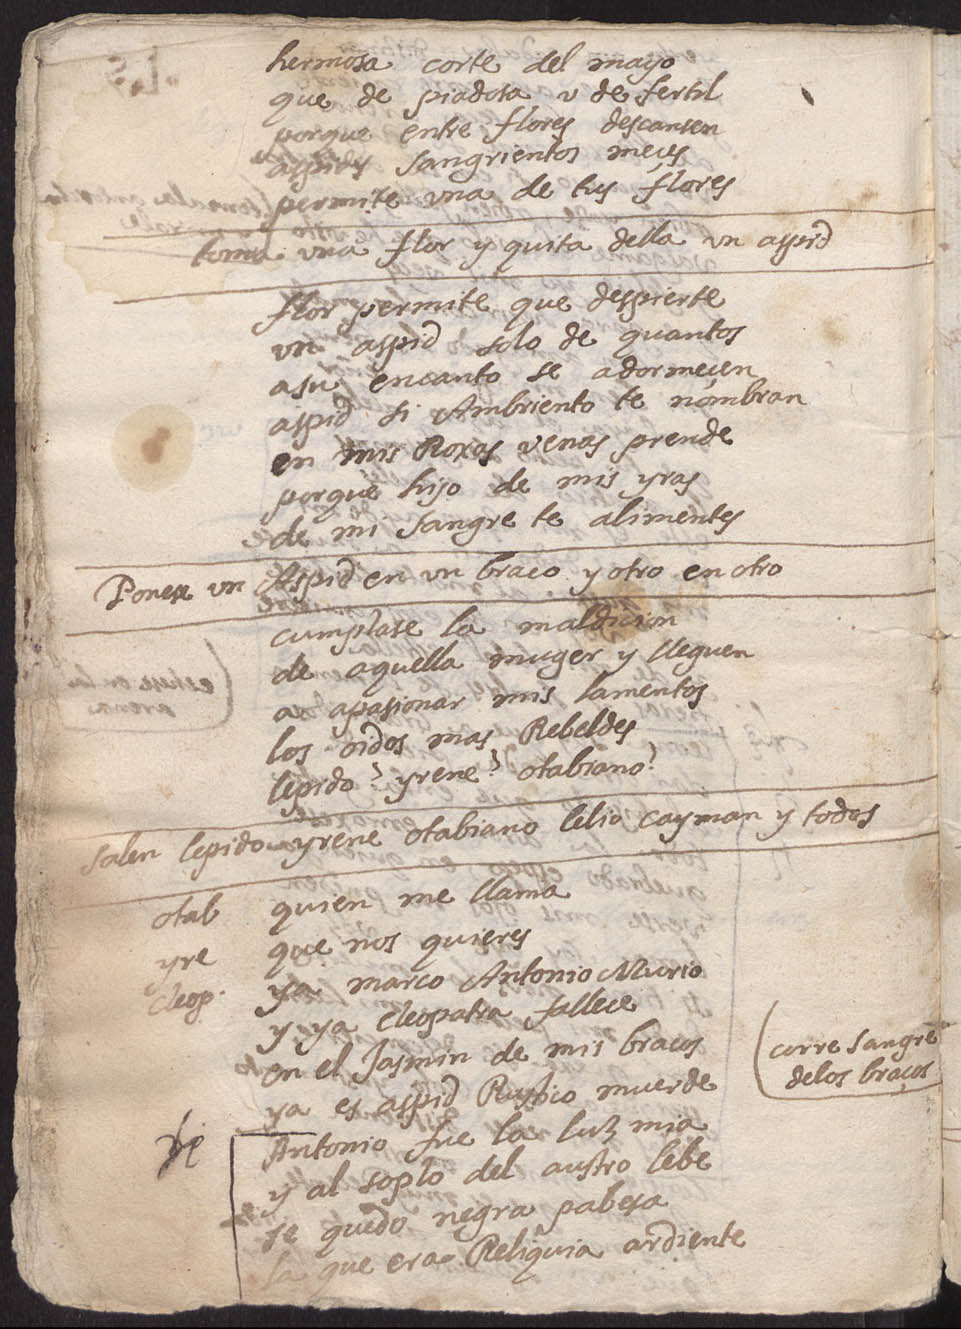 hermosa corte del mayo
que de piadosa v de fertil
porque entre flores descansen
aspides sangrientos meçes
permite vna de tus flores
toma vna flor y quita della vn aspid
flor permite que despierte
vn aspid solo de quantos
a su encanto se adormeçen
aspid si Ambriento te nombran
en mis Roxas venas prende
porque hijo de mis yras
de mi sangre te alimentes
Ponese vn Aspid en vn braço y otro en otro
cumplase la maldicion
de aquella muger y lleguen
a apasionar mis lamentos
los oidos mas Rebeldes
lepido? yrene? otabiano?
salen lepido yrene otabiano lelio cayman y todos
otab quien me llama
yre que nos quieres
cleop. ya marco Antonio Murio
y ya Cleopatra fallece
en el Jasmin de mis braços
ya es aspid Rustico muerde
corre sangre
de los braços
Antonio fue la luz mia
y al soplo del austro lebe
se quedo negra pabesa
la que era Reliquia ardiente